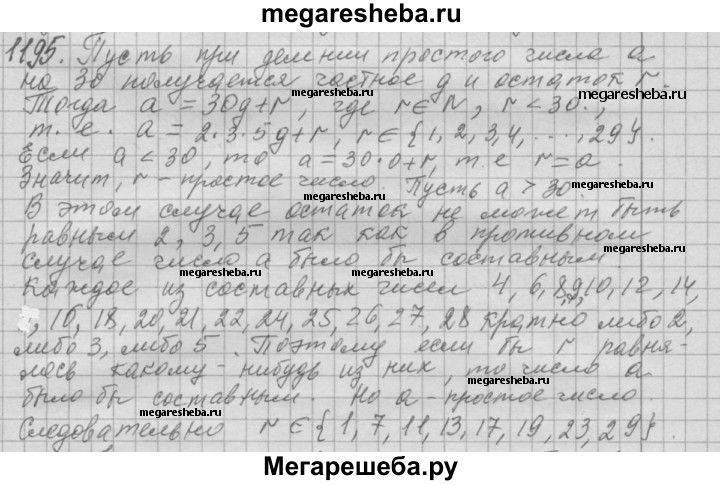 megaresheba.ru
1195. Пусть при делении простого числа a
на 30 получается частное g и остаток r.
megaresheba.ru megaresheba.ru
Тогда a = 30g+r, где r∈N, r < 30.,
т.е. a = 2·3·5g+r, r∈{1, 2, 3, 4, ..., 29}.
Если a < 30, то a = 30·0+r, т.е r = a.
megaresheba.ru megaresheba.ru
Значит, r - простое число. Пусть a > 30.
megaresheba.ru megaresheba.ru
В этом случае остаток не может быть
равным 2, 3, 5 так как в противном
случае число a было бы составным.
megaresheba.ru megaresheba.ru
Каждое из составных чисел 4, 6, 8, 9, 10, 12, 14,
, 16, 18, 20, 21, 22, 24, 25, 26, 27, 28 кратно либо 2,
megaresheba.ru megaresheba.ru
либо 3, либо 5. Поэтому если бы r равня-
лось какому-нибудь из них, то число a
было бы составным. Но a - простое число.
megaresheba.ru megaresheba.ru
Следовательно r ∈ {1, 7, 11, 13, 17, 19, 23, 29}.
Мегарешеба.ру